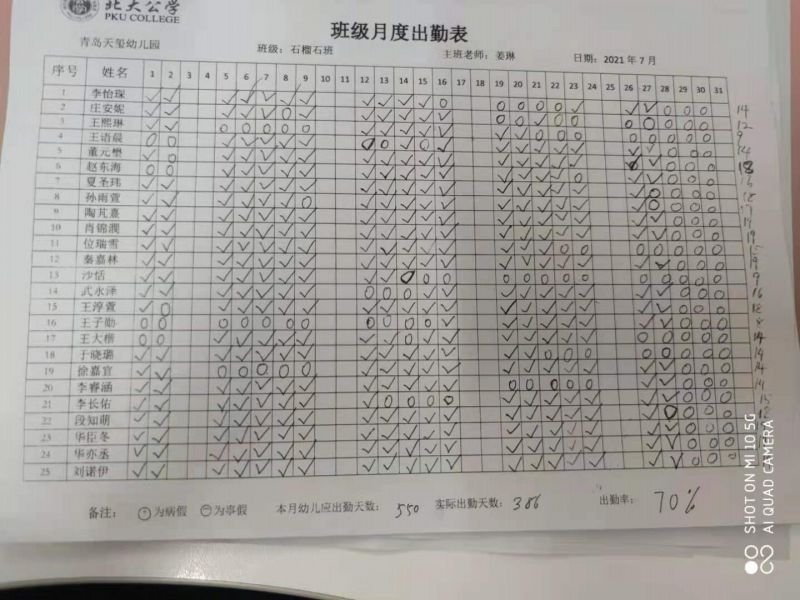 北大公学
PKU COLLEGE
班级月度出勤表
青岛天玺幼儿园 班级：石榴石班 主班老师：姜琳 日期：2021 年 7 月
序号 姓名 1 2 3 4 5 6 7 8 9 10 11 12 13 14 15 16 17 18 19 20 21 22 23 24 25 26 27 28 29 30 31
1 李怡琛
2 庄安妮 14
3 王熙琳 12
4 王语晨 9
5 董元懋 14
6 赵东海 18
7 夏圣玮
8 孙雨萱 18
9 陶芃嘉 17
10 肖锦濮
11 位瑞雪 19
12 秦嘉林
13 沙恬 9
14 武水泽 16
15 王淳萱
16 王子勋 8
17 王大楷 14
18 于晓璐 14
19 徐嘉宜 14
20 李睿涵 14
21 李长佑 15
22 段知萌
23 华臣冬
24 华亦丞
25 刘诺伊
备注： 为病假 为事假 本月幼儿应出勤天数： 550 实际出勤天数： 386 出勤率： 70%
SHOT ON MI 10 5G
AI QUAD CAMERA